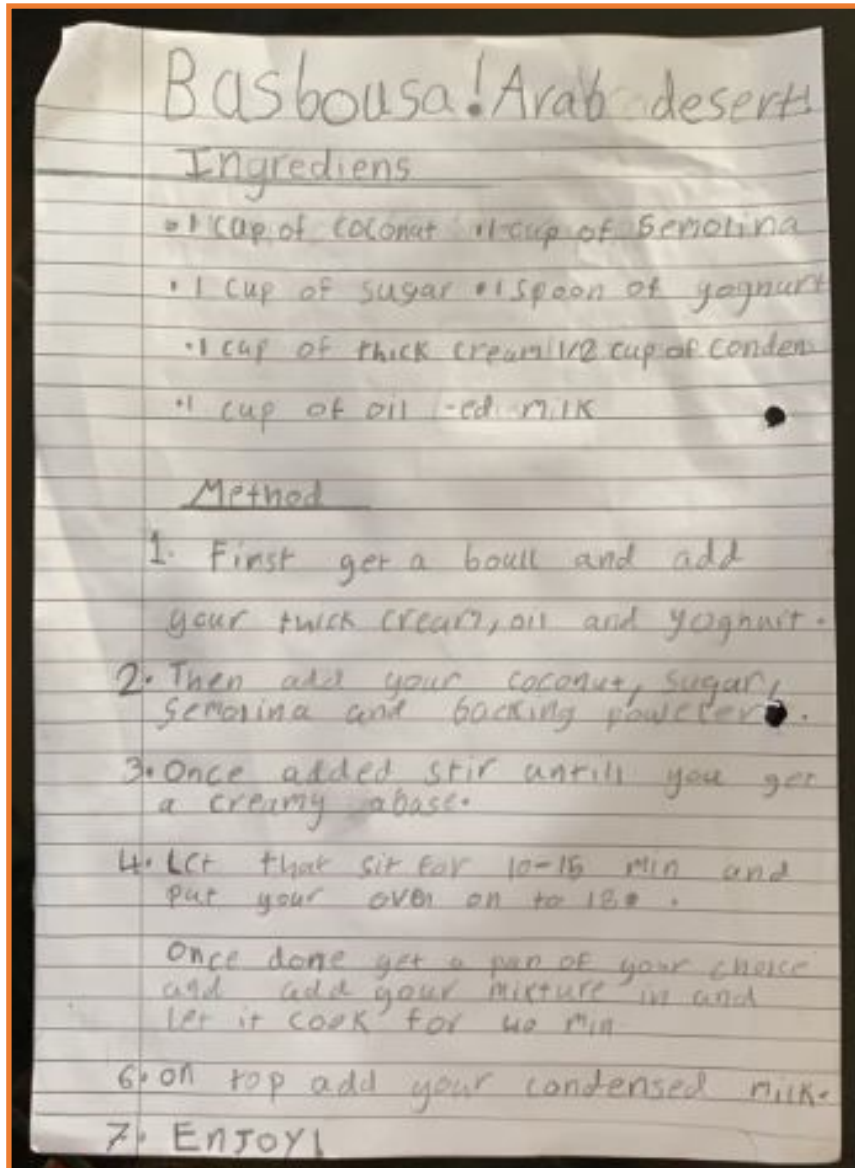 Basbousa! Arab desert!
Ingrediens
• 1 cup of coconut • 1 cup of Semolina
• 1 cup of sugar • 1 spoon of yoghurt
• 1 cup of thick cream 1/2 cup of conden
• 1 cup of oil -ed milk
Method
1. First get a boull and add
your thick cream, oil and yoghurt.
2. Then add your coconut, sugar,
Semolina and backing powder.
3. Once added stir untill you get
a creamy abase.
4. Let that sit for 10-15 min and
put your oven on to 180.
Once done get a pan of your choice
and add your mixture in and
let it cook for 40 min
6. on top add your condensed milk.
7. Enjoy!